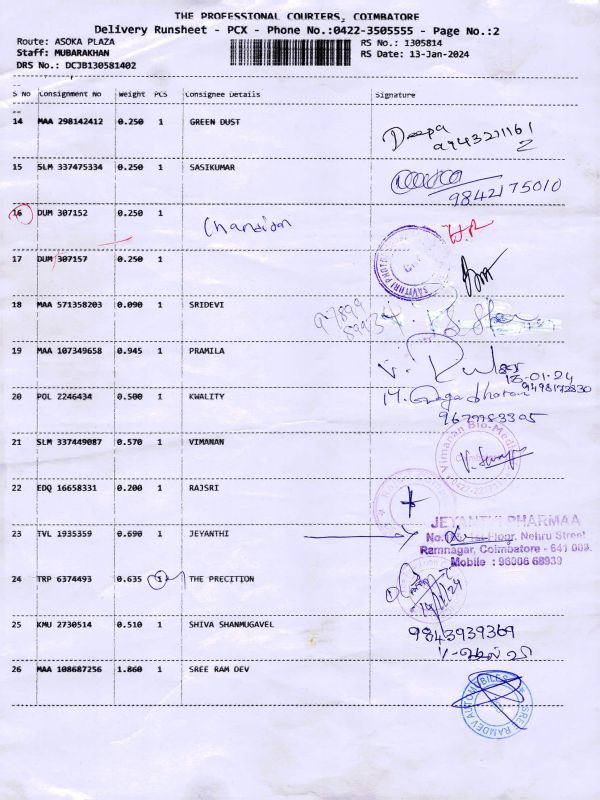 THE PROFESSIONAL COURIERS, COIMBATORE
Delivery Runsheet - PCX - Phone No.:0422-3505555 - Page No.:2
Route: ASOKA PLAZA RS No.: 1305814
Staff: MUBARAKHAN RS Date: 13-Jan-2024
DRS No.: DCJB130581402
S No Consignment No Weight PCS Consignee Details Signature
14 MAA 298142412 0.250 1 GREEN DUST
Deepa
9943211161
15 SLM 337475334 0.250 1 SASIKUMAR
9842175010
16 DUM 307152 0.250 1
17 DUM 307157 0.250 1
SAVITHRI PHOTO
18 MAA 571358203 0.090 1 SRIDEVI
97899
19 MAA 107349658 0.945 1 PRAMILA
20 POL 2246434 0.500 1 KWALITY
9498172830
21 SLM 337449087 0.570 1 VIMANAN
Vimanan Bio-Medi
22 EDQ 16658331 0.200 1 RAJSRI
23 TVL 1935359 0.690 1 JEYANTHI
JEYANTHI PHARMAA
1st Floor, Nehru Street
Ramnagar, Coimbatore - 641 009.
Mobile : 96006 68939
24 TRP 6374493 0.635 1 THE PRECITION
25 KMU 2730514 0.510 1 SHIVA SHANMUGAVEL
9843939369
26 MAA 108687256 1.860 1 SREE RAM DEV
SREE RAMDEV AUTOMOBILES